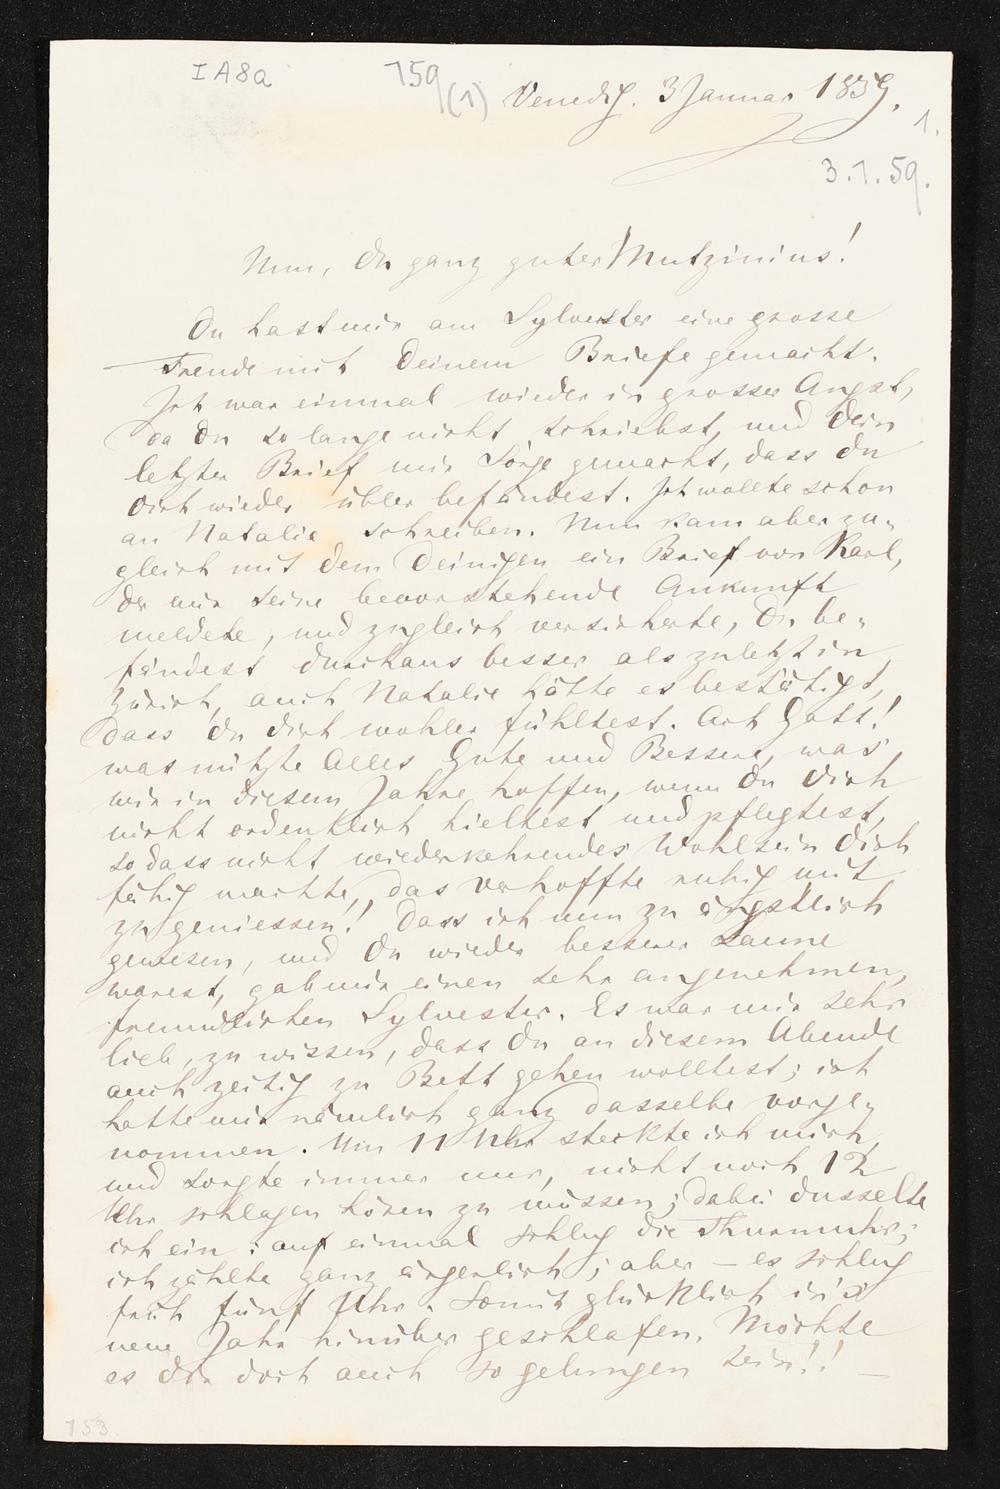 IA8a
159
(1)
Venedig. 3 Januar 1859.
1.
3.1.59.
Nun, Du ganz guter Mutzinius!
Du hast mir am Sylvester eine grosse
Freude mit Deinem Briefe gemacht.
Ich war einmal wieder in grosser Angst,
da Du so lange nicht schriebst, und Dein
letzter Brief mir Sorge gemacht, dass Du
Dich wieder übler befändest. Ich wollte schon
an Natalie schreiben. Nun kam aber zu-
gleich mit dem Deinigen ein Brief von Karl,
der mir seine bevorstehende Ankunft
meldete, und zugleich versicherte, Du be-
fändest durchaus besser als zuletzt in
Zürich, auch Natalie hätte es bestätigt,
dass Du Dich wohler fühltest. Ach Gott!
was nützte Alles Gute und Bessere, was
wir in diesem Jahre hoffen, wenn Du Dich
nicht ordentlich hieltest und pflegtest,
so dass nicht wiederkehrendes Wohlsein Dich
fähig machte, das Verhoffte ruhig mit
zu geniessen!! Dass ich nun zu ängstlich
gewesen, und Du wieder besserer Laune
warest, gab mir einen sehr angenehmen,
freundlichen Sylvester. Es war mir sehr
lieb, zu wissen, dass Du an diesem Abende
auch zeitig zu Bett gehen wolltest; ich
hatte mir nämlich ganz dasselbe vorge-
nommen. Um 11 Uhr steckte ich mich,
und sorgte immer nur, nicht noch 12
Uhr schlagen hören zu müssen; dabei dusselte
ich ein: auf einmal schlug die Thurmuhr;
ich zählte ganz ärgerlich; aber – es schlug
früh fünf Uhr. Somit glücklich in's
neue Jahr hinüber geschlafen. Möchte
es Dir doch auch so gelungen sein!! –
153.